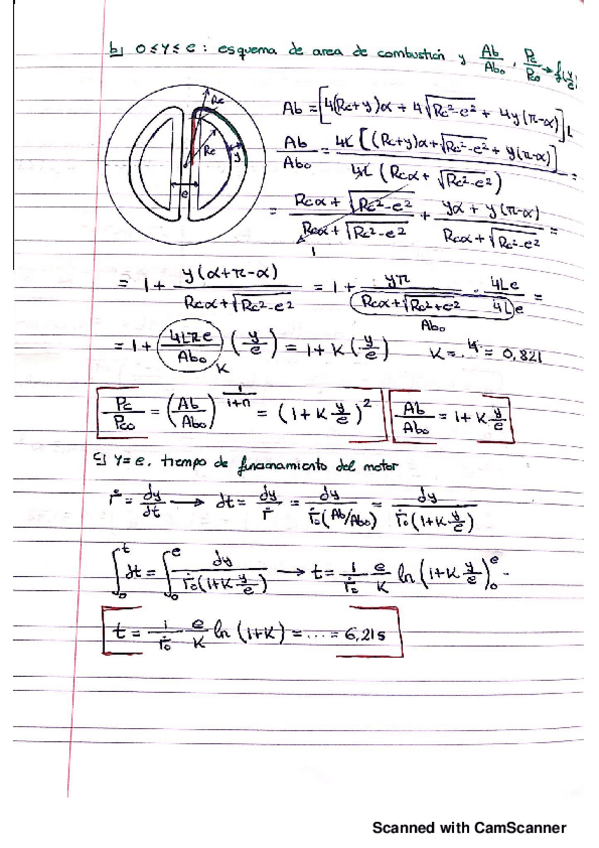 b) 0 ≤ y ≤ e : esquema de area de combustión y Ab/Ab₀ , Pc/Pc₀ → f(y/e)
Re
Rc
y
e
Ab = [4(Rc+y)α + 4√(Rc²-e²) + 4y(π-α)]L
Ab/Ab₀ = 4L[(Rc+y)α + √(Rc²-e²) + y(π-α)] / 4L(Rcα + √(Rc²-e²)) =
= (Rcα + √(Rc²-e²)) / (Rcα + √(Rc²-e²)) + (yα + y(π-α)) / (Rcα + √(Rc²-e²)) =
1
= 1 + y(α+π-α) / (Rcα + √(Rc²-e²)) = 1 + yπ / (Rcα + √(Rc²+e²)) · 4Le/4Le =
Ab₀
= 1 + (4Lπe/Ab₀)(y/e) = 1 + K(y/e) K = ... = 0,821
K
Pc/Pc₀ = (Ab/Ab₀)^(1/(1+n)) = (1 + K y/e)² Ab/Ab₀ = 1 + K y/e
c) y = e. tiempo de funcionamiento del motor
ṙ = dy/dt → dt = dy/ṙ = dy/(ṙ₀(Ab/Ab₀)) = dy/(ṙ₀(1+K y/e))
∫₀ᵗ dt = ∫₀ᵉ dy/(ṙ₀(1+K y/e)) → t = 1/ṙ₀ e/K ln(1+K y/e)₀ᵉ =
t = 1/ṙ₀ e/K ln(1+K) = .... = 6,21s
Scanned with CamScanner